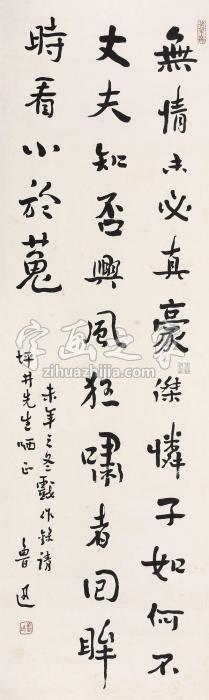 無情未必真豪傑憐子如何不
丈夫知否興風狂嘯者回眸
時看小於菟
未年之冬戲作錄請
坪井先生哂正
魯迅
字画之家
zihuazhijia.com